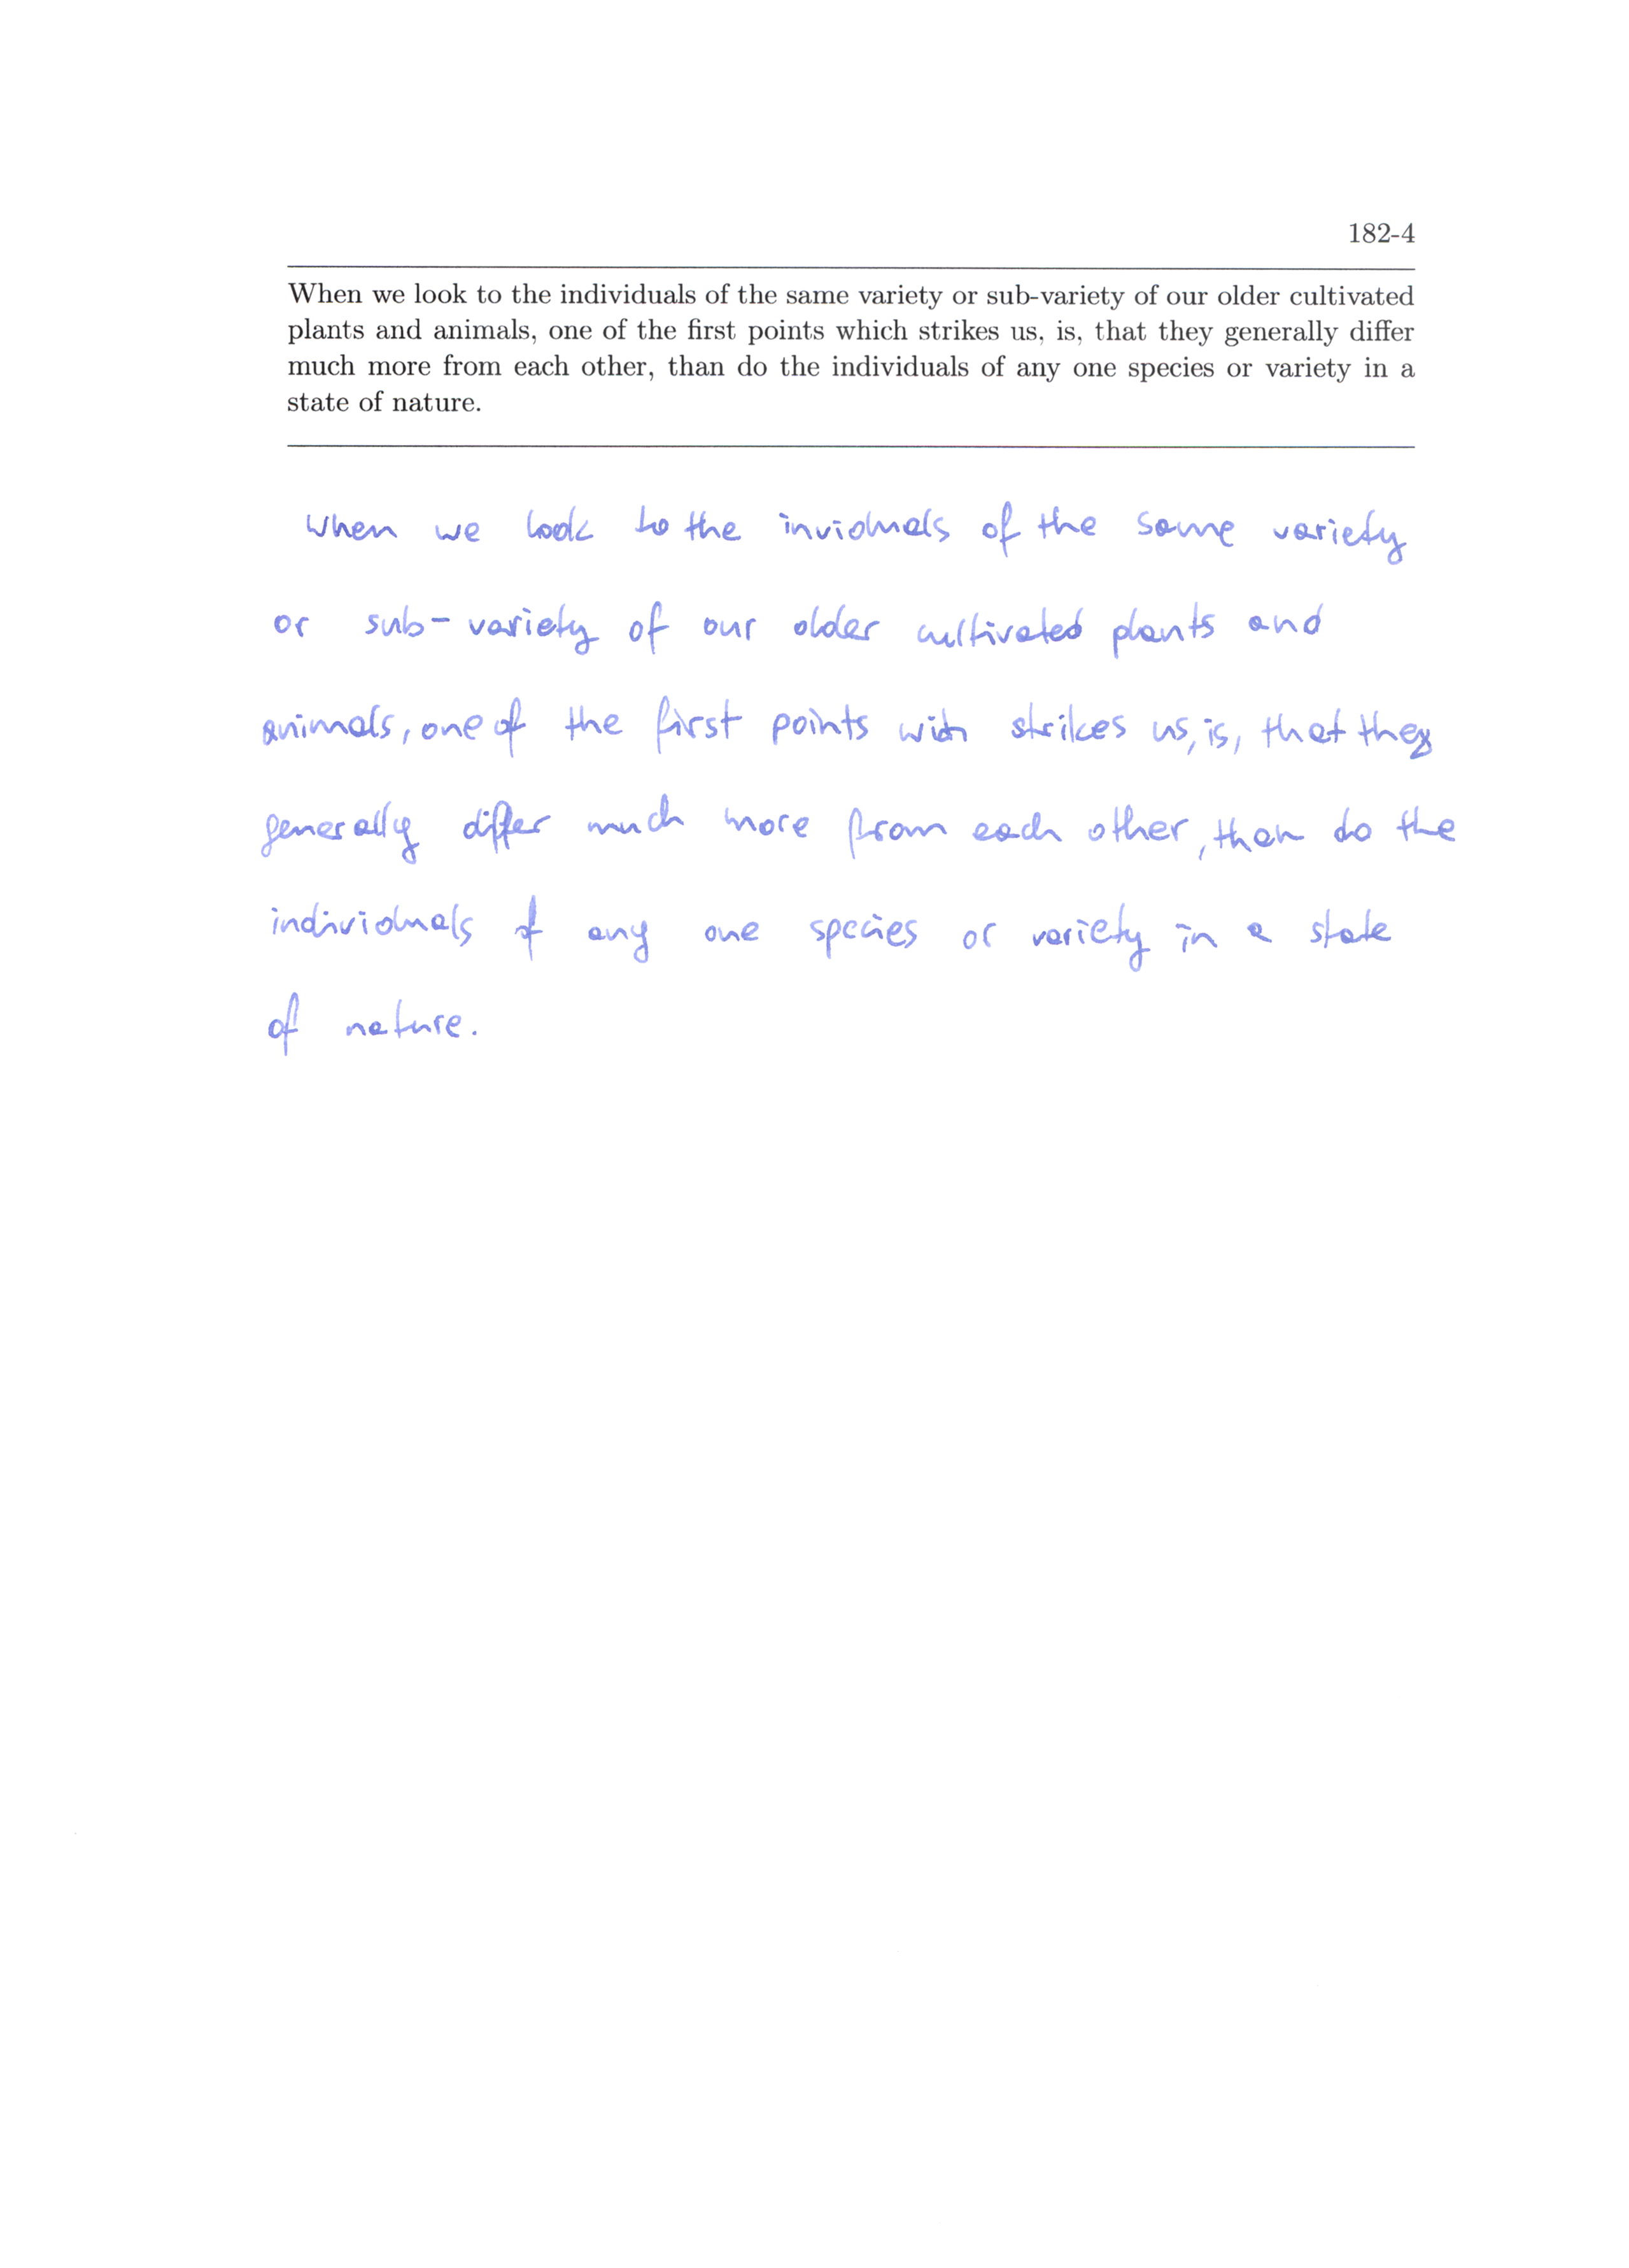 182-4
When we look to the individuals of the same variety or sub-variety of our older cultivated
plants and animals, one of the first points which strikes us, is, that they generally differ
much more from each other, than do the individuals of any one species or variety in a
state of nature.
When we look to the inviduals of the same variety
or sub-variety of our older cultivated plants and
animals, one of the first points wich strikes us, is, that they
generally differ much more from each other, than do the
individuals of any one species or variety in a state
of nature.